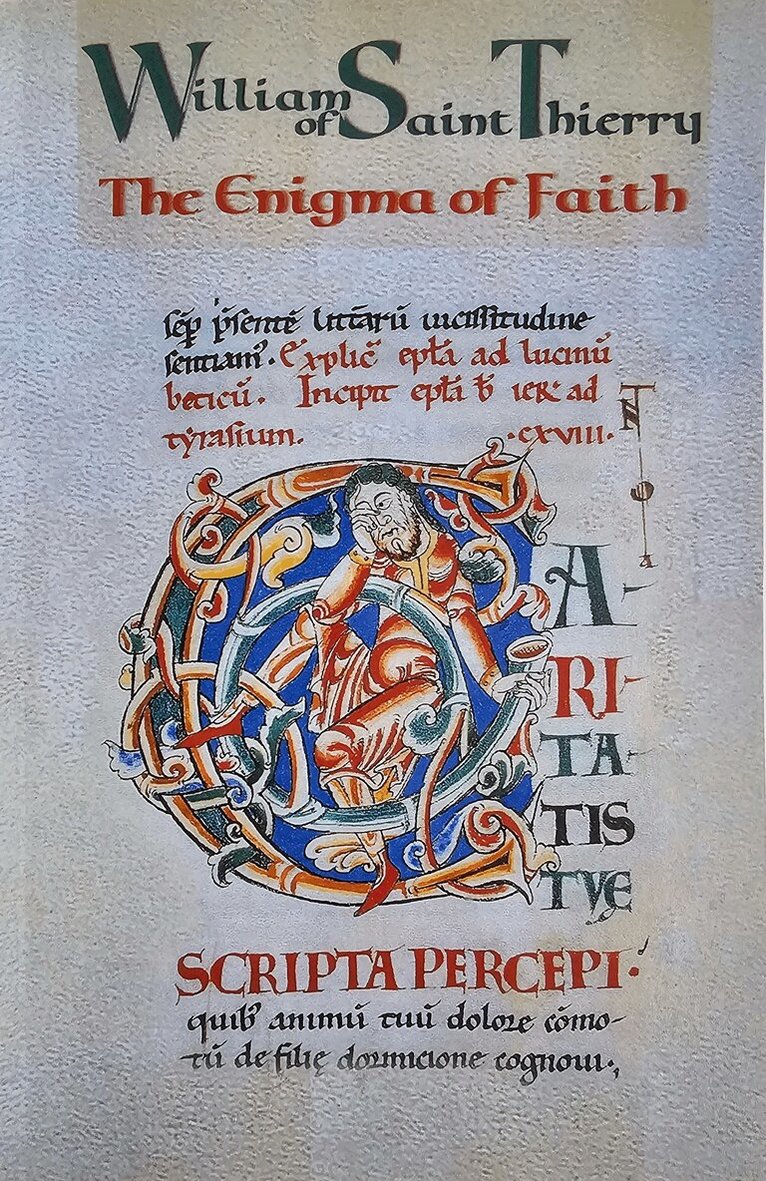 William of Saint Thierry
The Enigma of Faith
sēp p̄sentē litt̄arū uicissitudine
sentiam᷒. Explic̄ ep̄la ad lucinū
beticū. Incipit ep̄la b̄ ier̄ ad
tyrasium. .cxviii.
CARI-
TA-
TIS
TVE
SCRIPTA PERCEPI.
quib᷒ animū tuū dolore cōmo-
tū de filię dormicione cognoui.,